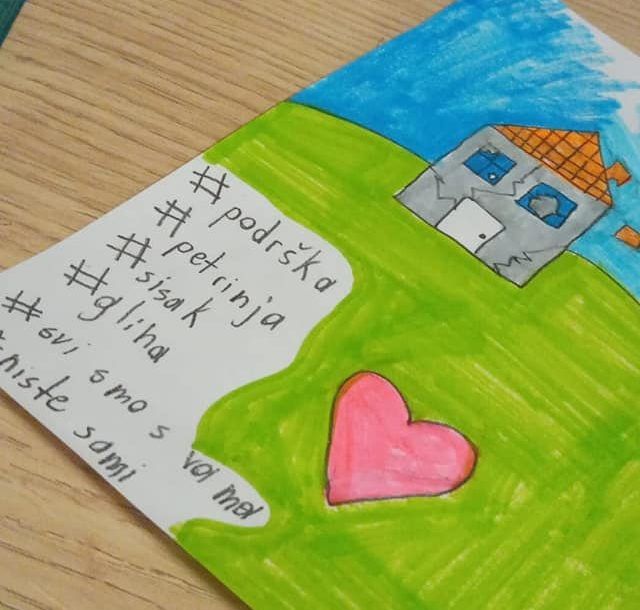 # podrška
# petrinja
# sisak
# glina
# svi smo s vama
# niste sami